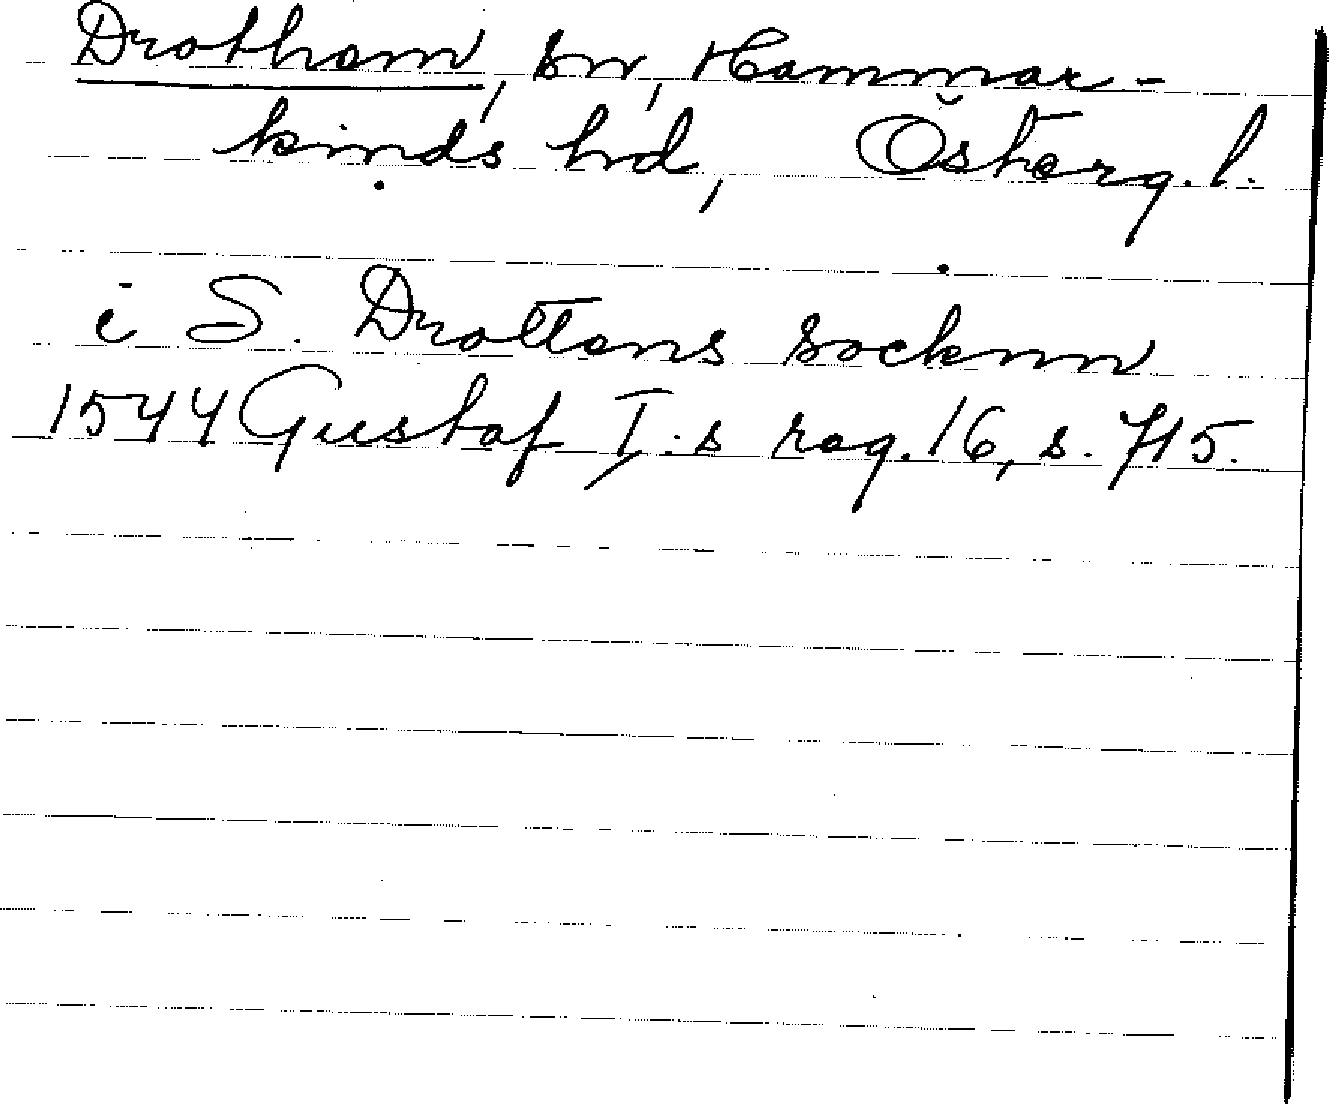 Drothem, sn, Hammar-
kinds hd, Österg. l.
i S. Drottens socknn
1544 Gustaf I:s reg. 16, s. 715.